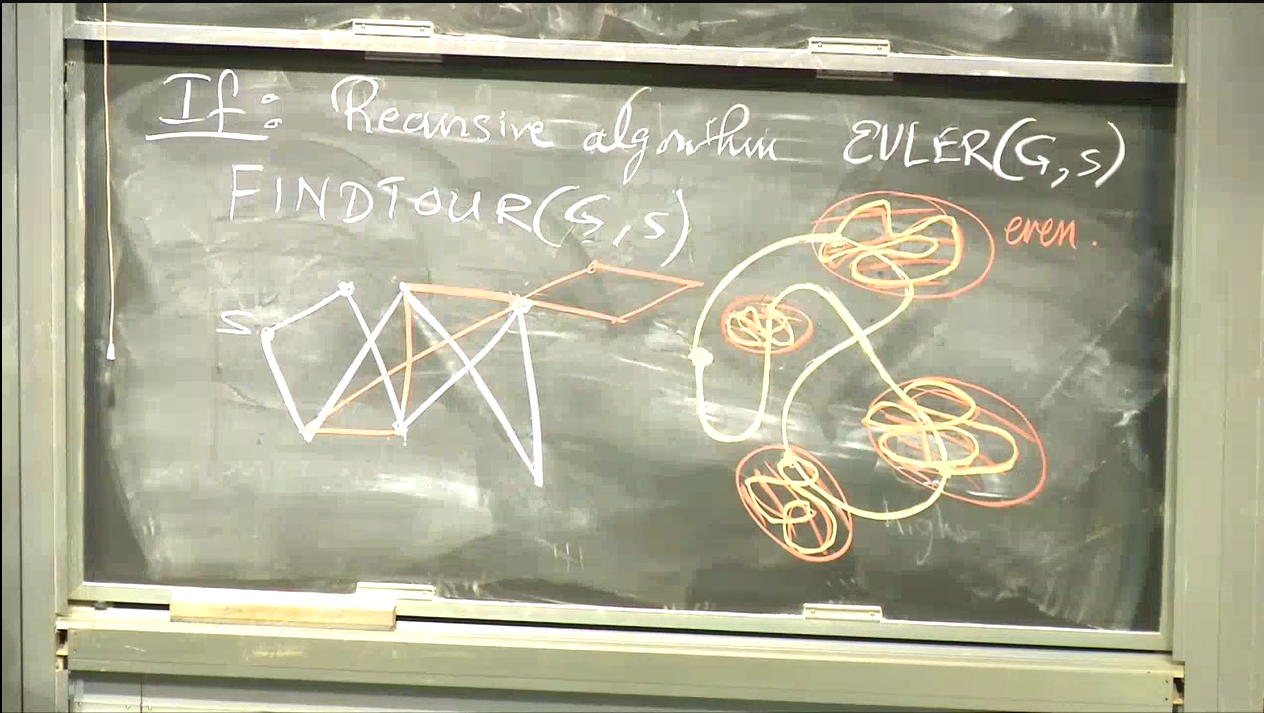 If: Recursive algorithm EULER(G,s)
FINDTOUR(G,s)
even.
S